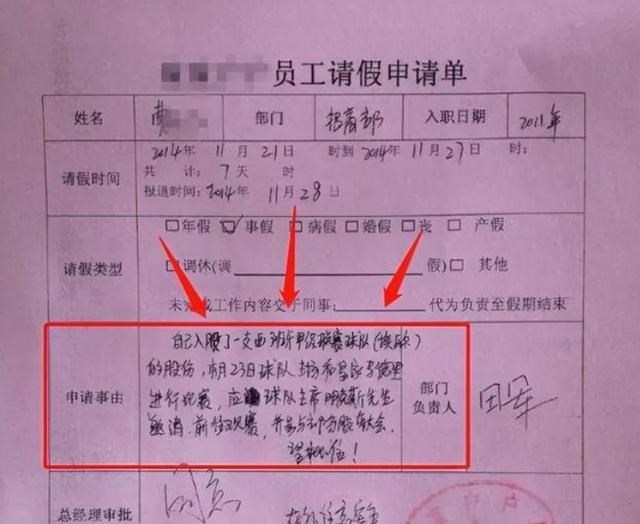 员工请假申请单
姓名 黄 部门 招商部 入职日期 2011年
2014年 11月 21日 时到2014年 11月 27日 时:
请假时间 共 计: 7天 时
报道时间: 2014年 11月 28日
□年假 ☑事假 □病假 □婚假 □丧 □产假
请假类型 □调休(调 假) □其他
未完成工作内容交于同事: 代为负责至假期结束
自己入股了一支西班牙甲级联赛球队(埃瓦)
的股份, 11月23日球队主场对皇家马德里
申请事由 进行比赛, 应邀球队主席 先生 部门
邀请 前往观赛, 并参与 股东大会. 负责人 田军
望批准!
总经理审批